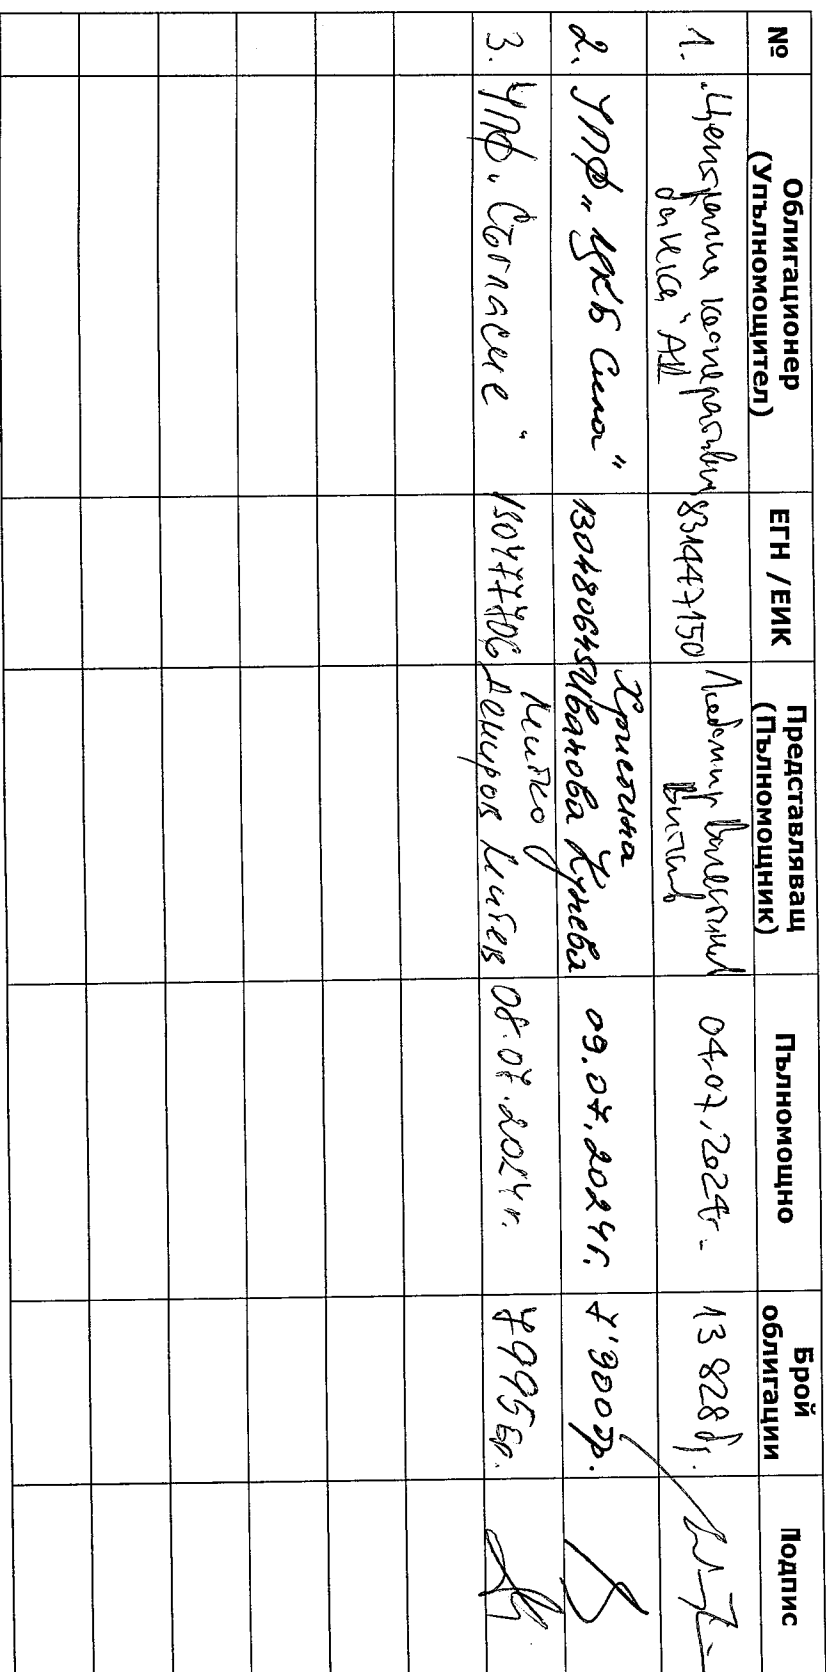 №
Облигационер
(Упълномощител)
ЕГН /ЕИК
Представляващ
(Пълномощник)
Пълномощно
Брой
облигации
Подпис
1.
"Централна кооперативна
банка" АД
831447150
Любомир
04.07.2024г.
13 828 бр.
2.
УПФ „ЦКБ Сила"
130480645
Христина
Иванова Кунева
09.07.2024г.
7'900бр.
3.
УПФ „Съгласие"
130477706
Митко
Митев
08.07.2024г.
7995бр.